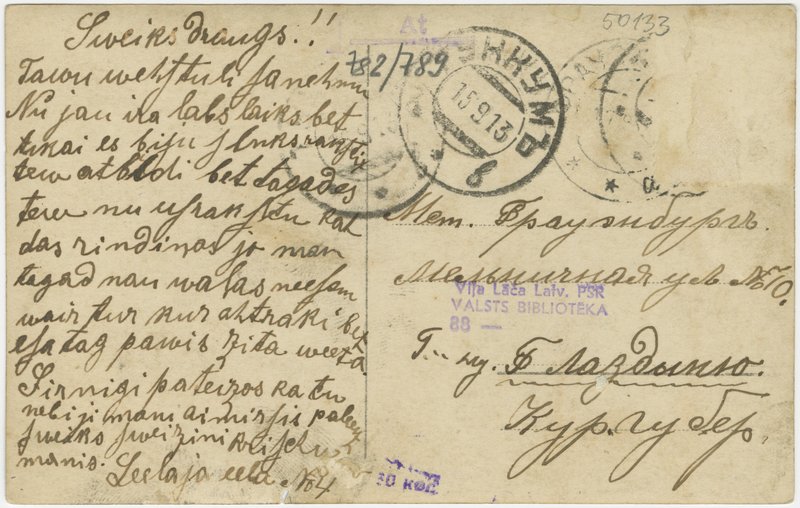 Sweiks draugs.!!
Tawu wehstuli sanehmu
Nu jau ira labs laiks bet
tikai es biju slinks rakstit
tew atbildi bet tagad es
tew nu usrakstu kah
das rindiņas jo man
tagad nau walas neesem
wair tur kur ahtraki bet
esa tag pawis zita weeta
Sirnigi pateizos ka tu
nebiji mani aimirsis paleez
sweiks sweizini
manis.
Leelaja eela No4
At
782/789
50133
15.9.13
в
Мет. Фрауэнбургъ.
Мельничная ул №10.
Г... ну. Блаздыню.
Кур. губер.
Viļa Lāča Latv. PSR
VALSTS BIBLIOTĒKA
88 —
30 коп